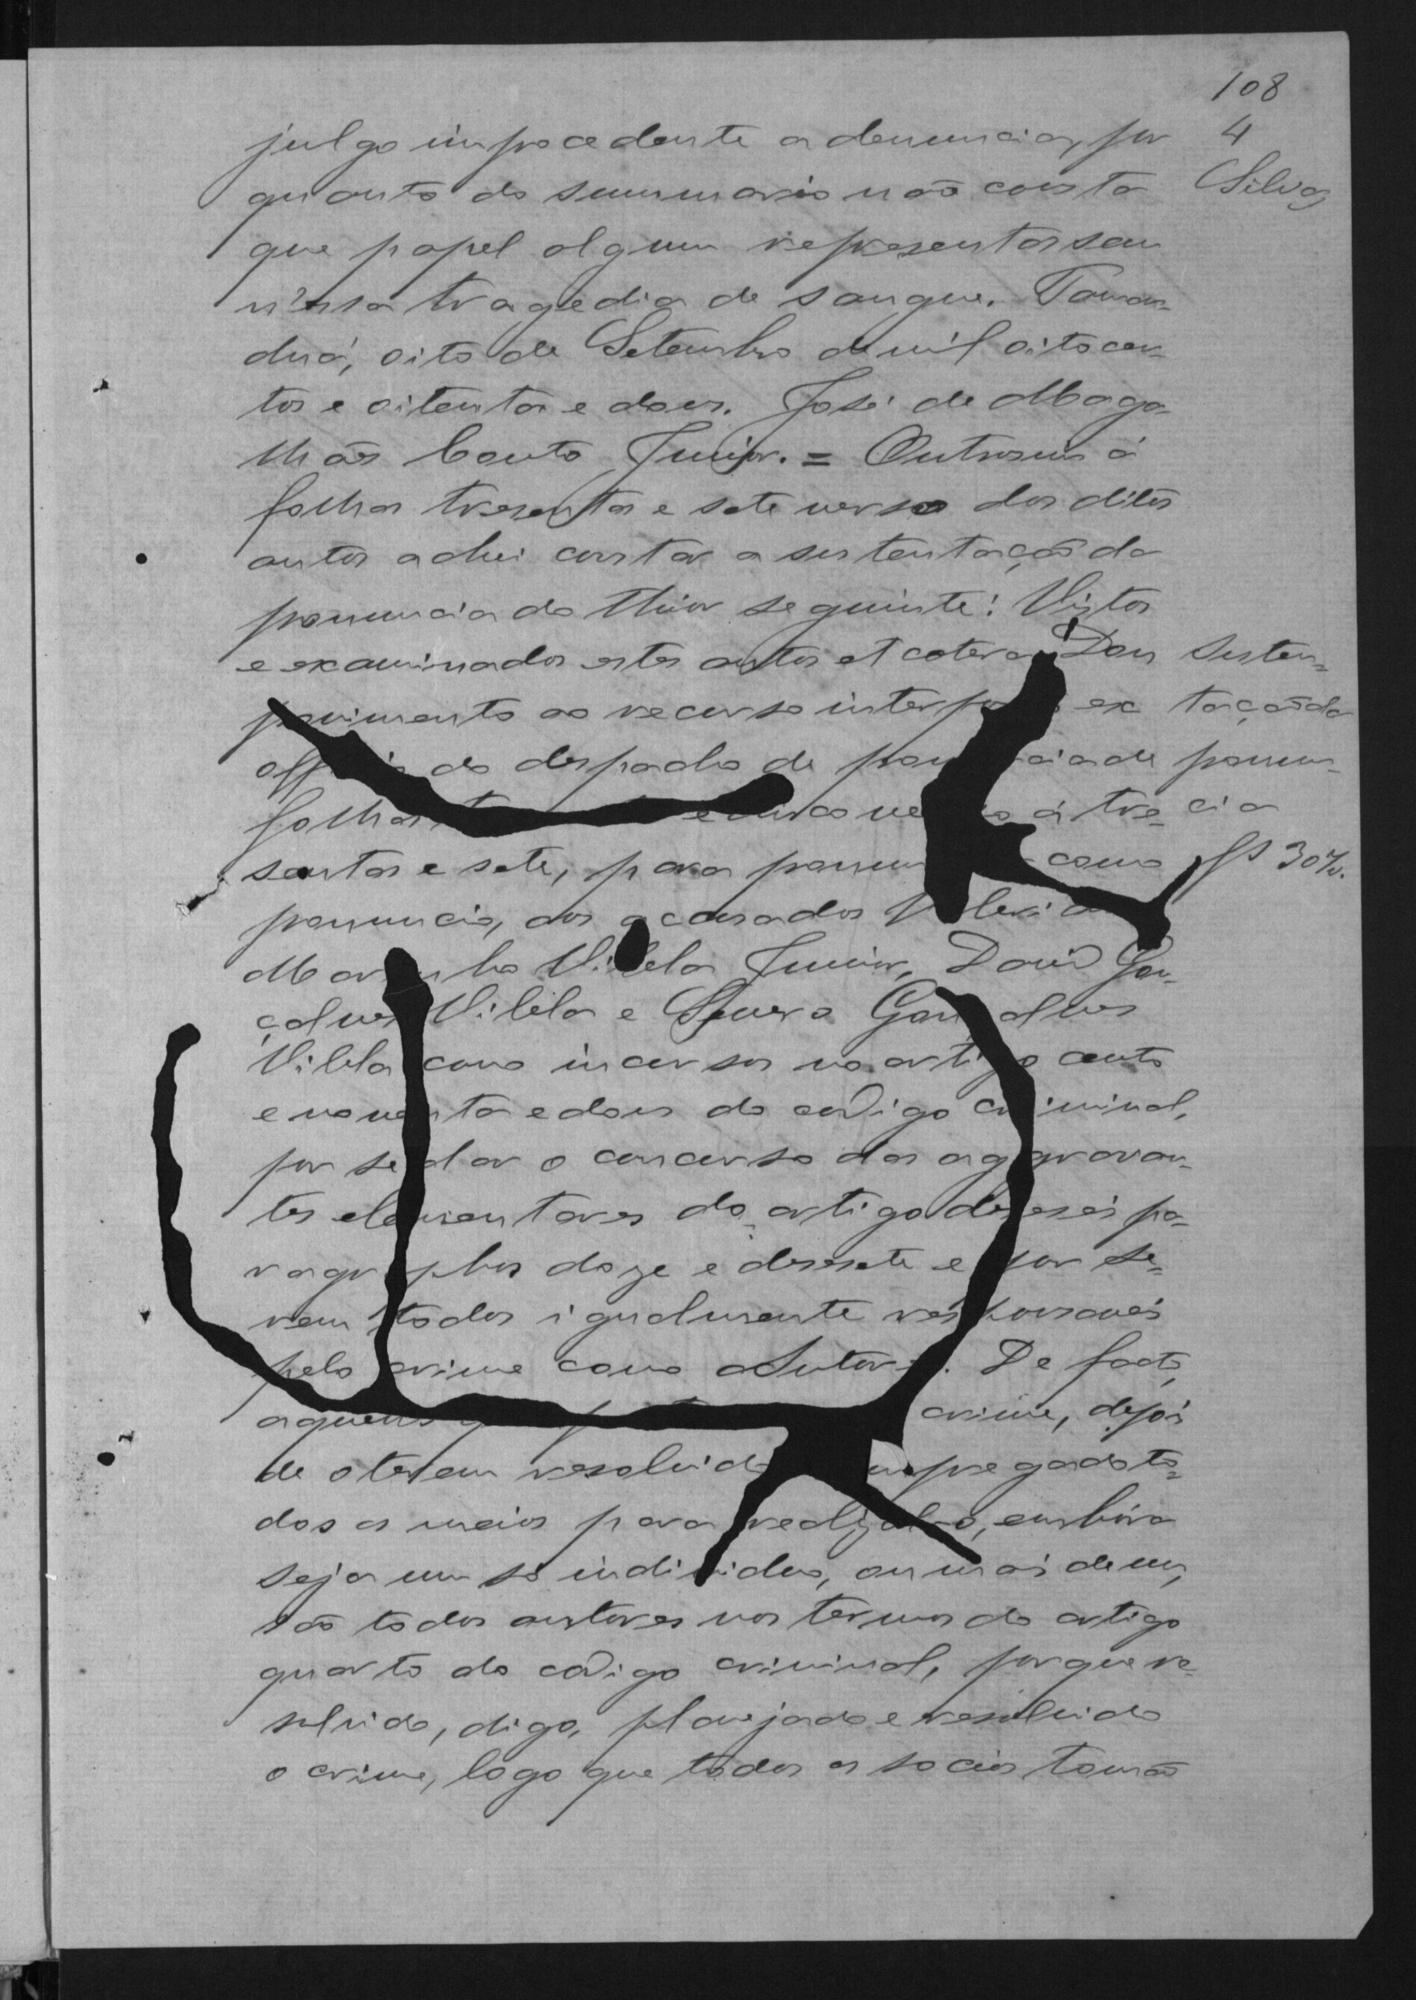 108
4
Silva
julgo improcedente a denuncia, por
quanto do summario não consta
que papel algum representassem
n'essa tragedia de sangue. Taman-
duá, oito de Setembro de mil oitocen-
tos e oitenta e dous. José de Maga-
lhães Couto Junior. = Outrosim á
folhas tresentas e sete verso dos ditos
autos achei constar a sustentação da
pronuncia do theor seguinte: Vistos
e examinados estes autos et cetera. Dou
provimento ao recurso interposto ex
officio do despacho de pronuncia de
folhas e cinco verso á tre-
sentas e sete, para pronun como
pronuncio, aos accusados
Marinho Vilela Junior, David Gon-
çalves Vilela e Severo Gonçalves
Vilela como incursos no artigo cento
e noventa e dous do codigo criminal,
por se dar o concurso das aggravan-
tes elementares do artigo deseseis pa-
ragraphos doze e desesete e por se-
rem todos igualmente responsaveis
pelo crime como autores. De facto,
aquelles crime, depois
de o terem resolvido empregado to-
dos os meios para realizal-o, embora
seja um só individuo, ou mais de um,
são todos autores nos termos do artigo
quarto do codigo criminal, porque re-
solvido, digo, planejado e resolvido
o crime, logo que todos os socios tomão
Susten-
tação da
pronun-
cia
fs 307v.